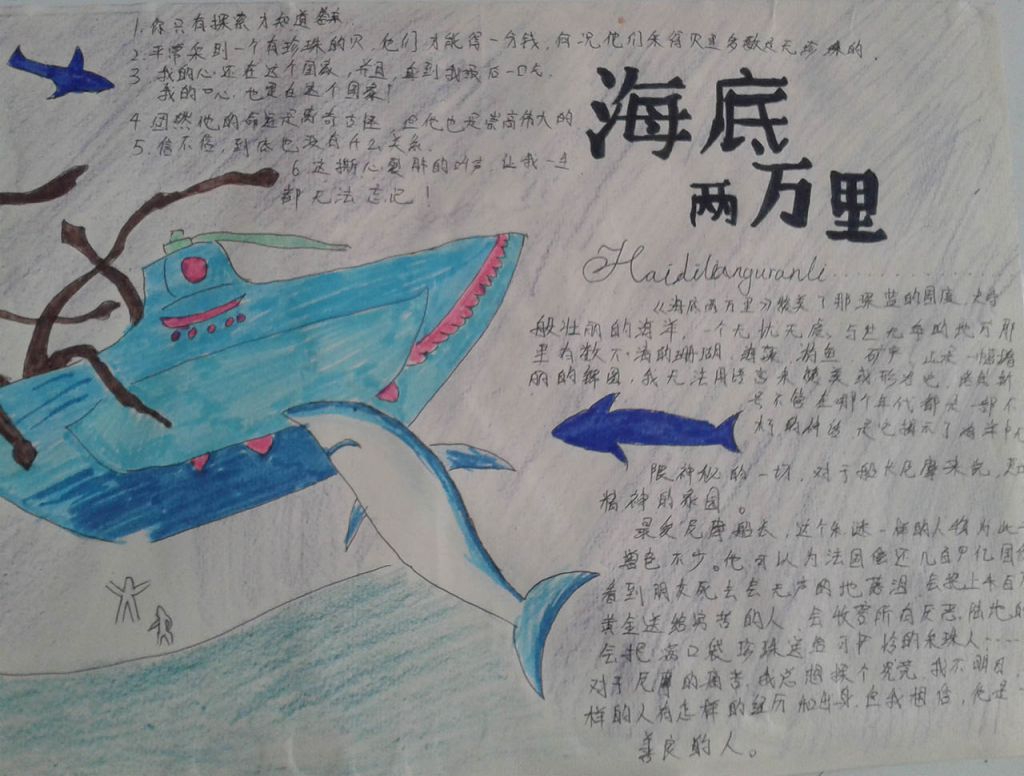 1. 你只有探索才知道答案.
2. 平常采到一个有珍珠的贝.他们才能得一分钱,何况他们采得贝还多数是无珍珠的.
3 我的心还在这个国家,并且,直到我最后一口气.
我的心.也是在这个国家!
4 固然他的命运是离奇古怪 但他也是崇高伟大的
5. 信不信,到底也没有什么关系.
6.这撕心裂肺的叫声.让我一生
都无法忘记!
海底
两万里
Haidiliangwanli
《海底两万里》 了那深蓝的国度.
般壮丽的海洋,一个无忧无虑、与 的地方那
里有数不清的珊瑚 海藻、游鱼
丽的 图.我无法用语言来 或形容它.
号不管在哪个年代都是一部不
是它揭示了海洋中
限神秘的一切.对于船长尼摩来说,
精神的家园。
最 尼摩船长,这个 一样的人物为此
增色不少。他可以为法国偿还几百万亿国债
看到朋友死去会无声的地落泪.会把上千百万
黄金送给穷苦的人 会收容所有厌恶陆地的
会把满口袋珍珠送给可怜的采珠人……
对于尼摩的痛苦,我总想探个究竟.我不明白
样的人有怎样的经历和出身.但我相信,他是
善良的人。